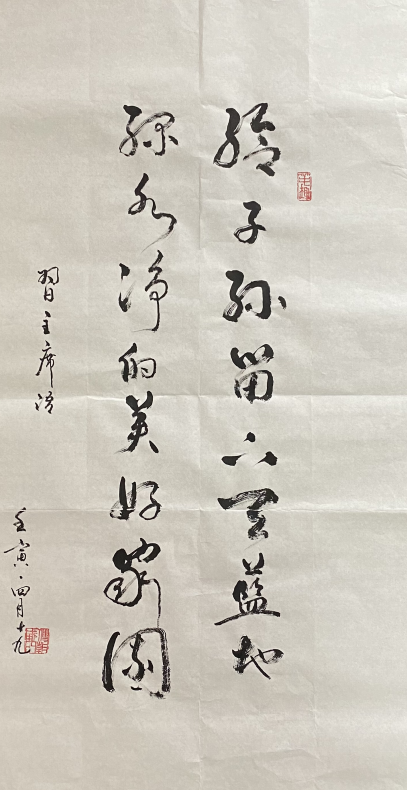 给子孙留下天蓝地
绿水净的美好家園
習主席语
壬寅·四月十九